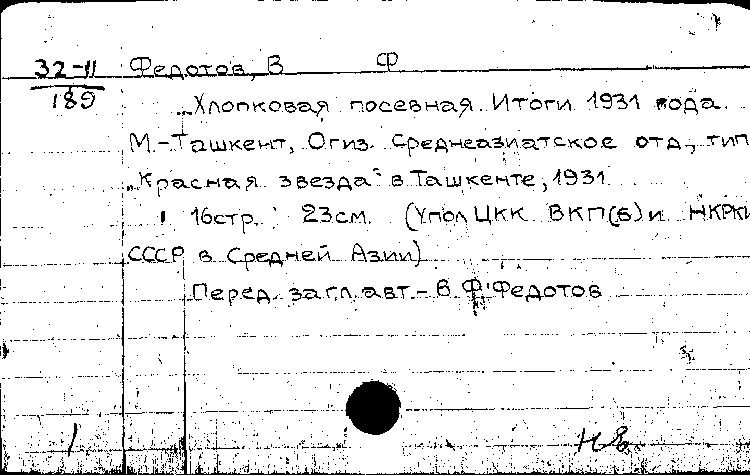 32-11 Федотов, В Ф
189
„Хлопковая посевная. Итоги 1931 года.
М.-Ташкент, Огиз. Среднеазиатское отд., тип
„Красная звезда" в Ташкенте, 1931
16стр. 23см. (Упол ЦКК ВКП(б) и НКРКИ
СССР в Средней Азии)
Перед. загл. авт.- В.Ф. Федотов